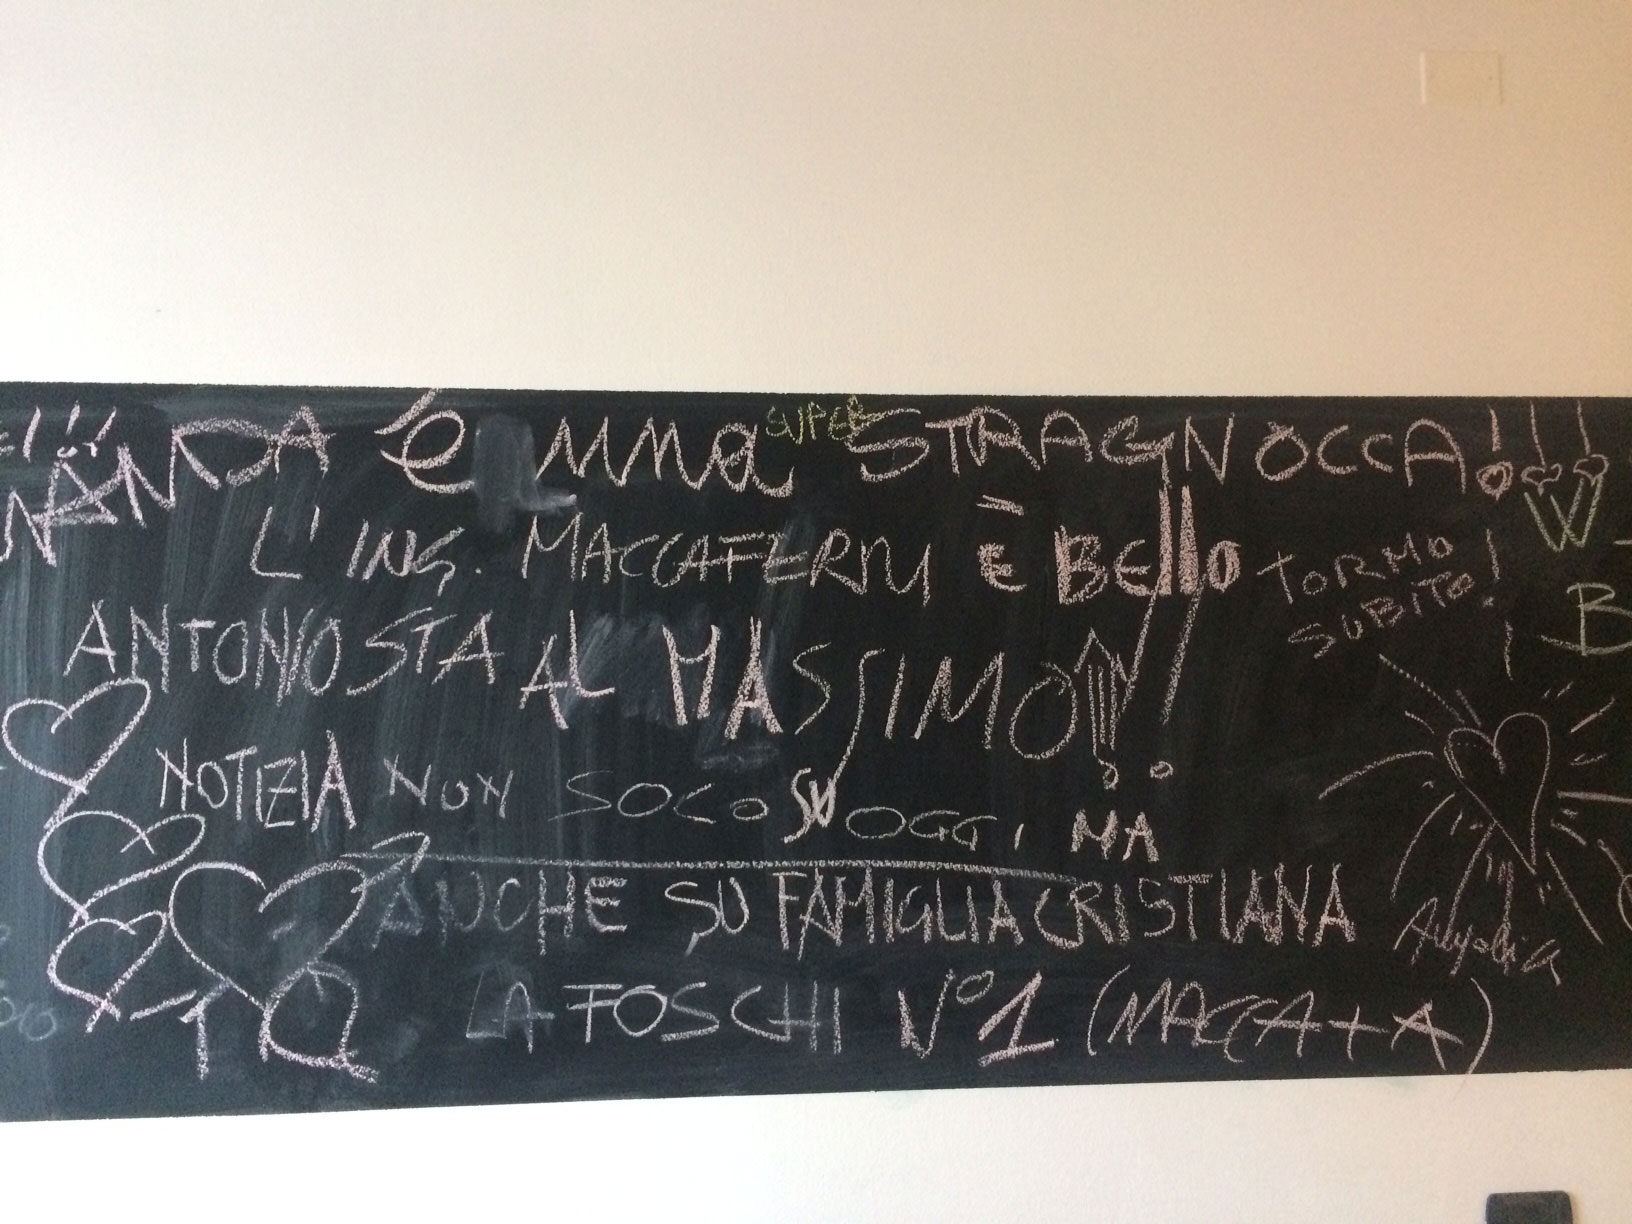 WANDA è una SUPER STRAGNOCCA!!!
L' ING. MACCAFERRI È BEllO
TORMO
SUBITO!
ANTONIO STA AL MASSIMO!!!
NOTIZIA NON SOLO SU OGGI, MA
ANCHE SU FAMIGLIA CRISTIANA
TQ LA FOSCHI N°1 (MACCA+A)
W
B